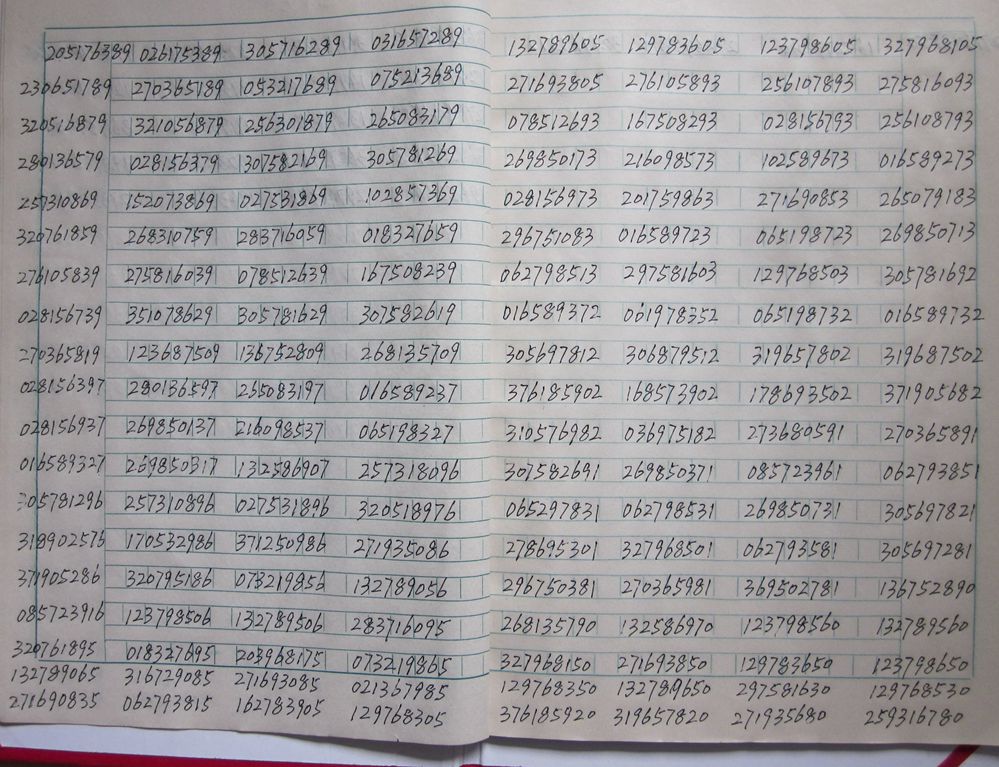 205176389 026175389 305716289 031657289 132789605 129783605 123798605 327968105
230651789 270365189 053217689 075213689 271693805 276105893 256107893 275816093
320516879 321056879 256301879 265083179 078512693 167508293 028156793 256108793
280136579 028156379 307582169 305781269 269850173 216098573 102589673 016589273
257310869 152073869 027531869 102857369 028156973 201759863 271690853 265079183
320761859 268310759 283716059 018327659 296751083 016589723 065198723 269850713
276105839 275816039 078512639 167508239 062798513 297581603 129768503 305781692
028156739 351078629 305781629 307582619 016589372 061978352 065198732 016589732
270365819 123687509 136752809 268135709 305697812 306879512 319657802 319687502
028156397 280136597 265083197 016589237 376185902 168573902 178693502 371905682
028156937 269850137 216098537 065198327 310576982 036975182 273680591 270365891
016589327 269850317 132586907 257318096 307582691 269850371 085723961 062793851
305781296 257310896 027531896 320518976 065297831 062798531 269850731 305697821
318902576 170532986 371250986 271935086 278695301 327968501 062793581 305697281
371905286 320795186 073219856 132789056 296750381 270365981 369502781 136752890
085723916 123798506 132789506 283716095 268135790 132586970 123798560 132789560
320761895 018327695 203968175 073219865 327968150 271693850 129783650 123798650
132789065 316729085 271693085 021367985 129768350 132789650 297581630 129768530
271690835 062793815 162783905 129768305 376185920 319657820 271935680 259316780